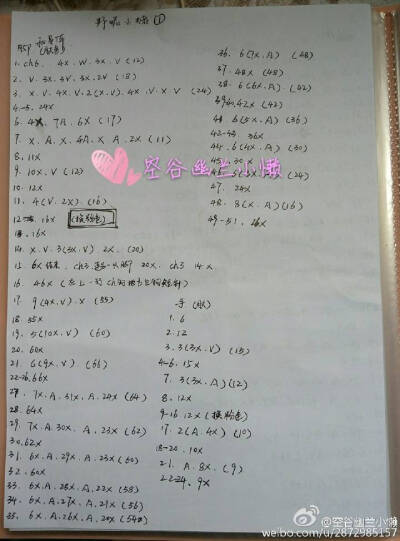 1. ch6. 4X. W. 3X. V (12)
2. V. 3X. 3V. 3X. 2V (18)
3. X. V. 4X. V. 2(X.V). 4X. V. X. V (24)
4-5. 24X
6. 4X. 7A. 6X (17)
7. X. A. X. 4A. X. A. 2X (11)
8. 11X
9. 10X. V (12)
10. 12X
11. 4(V. 2X). (16)
16X (换粉色)
16X
14. X. V. 3(3X.V) 2X. (20)
15. 6X 20X. ch3 14X
16. 46X
17. 9(4X.V). X (55)
18. 55X
19. 5(10X.V) (60)
20. 60X
21. 6(9X.V). (66)
22-26. 66X
27. 7X. A. 31X. A. 24X (64)
28. 64X
29. 7X. A. 30X. A. 23X (62)
30. 62X
31. 6X. A. 29X. A. 23X (60)
32. 60X
33. 6X. A. 28X. A. 22X (58)
34. 6X. A. 27X. A. 21X (56)
35. 6X. A. 26X. A. 20X (54)
36. 6(7X.A) (48)
37. 48X (48)
38. 6(6X.A) (42)
42X (42)
6(5X.A) (36)
42-43. 36X
44. 6(4X.A) (30)
30X
(24)
47. 24X
48. 8(X.A) (16)
49-51. 16X
手(肤)
1. 6
2. 12
3. 3(3X.V) (15)
4-6. 15X
7. 3(3X.A) (12)
8. 12X
9-16. 12X (换粉色)
17. 2(A.4X) (10)
18-20. 10X
21. A. 8X. (9)
22-24. 9X
空谷幽兰小懒
@空谷幽兰小懒
weibo.com/u/2872985157